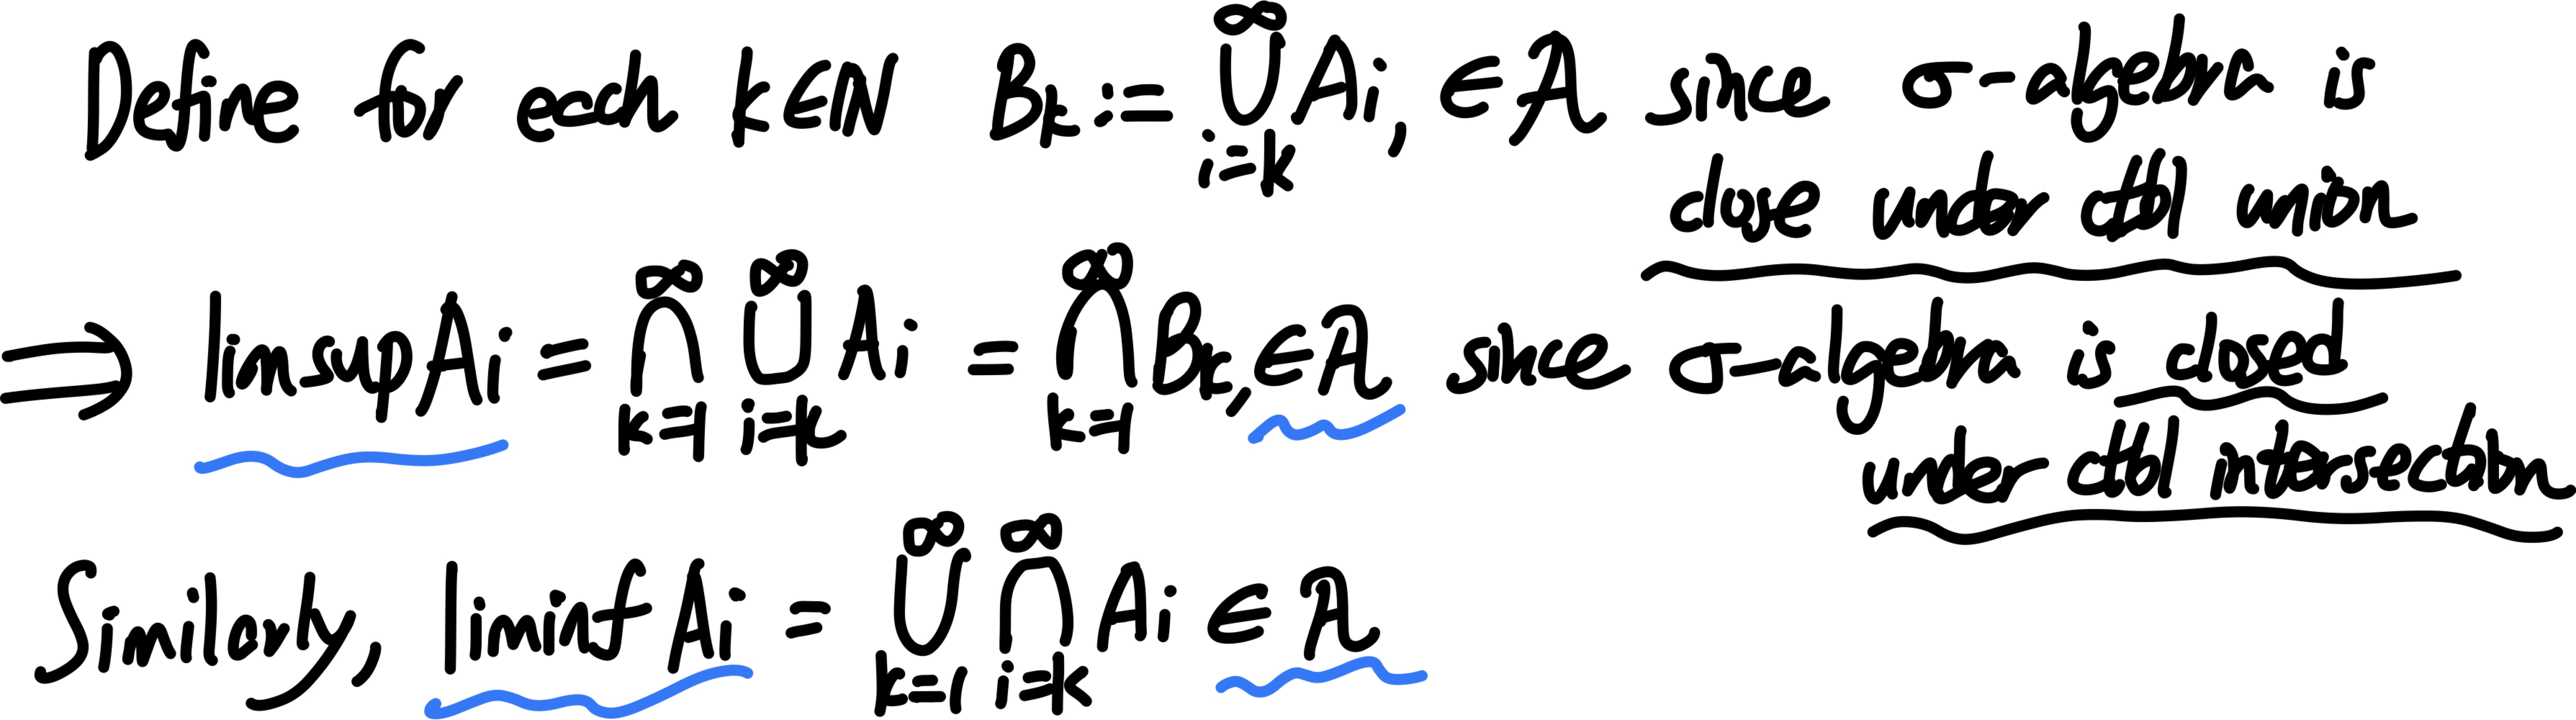 Define for each k∈ℕ B_k := ⋃_{i=k}^∞ A_i, ∈ 𝒜 since σ-algebra is
close under ctbl union
⇒ limsup A_i = ⋂_{k=1}^∞ ⋃_{i=k}^∞ A_i = ⋂_{k=1}^∞ B_k, ∈ 𝒜 since σ-algebra is closed
under ctbl intersection
Similarly, liminf A_i = ⋃_{k=1}^∞ ⋂_{i=k}^∞ A_i ∈ 𝒜